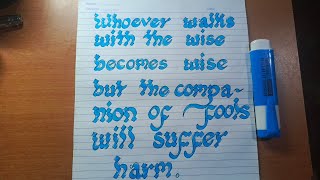 whoever walks
with the wise
becomes wise
but the compa-
nion of fools
will suffer
harm.